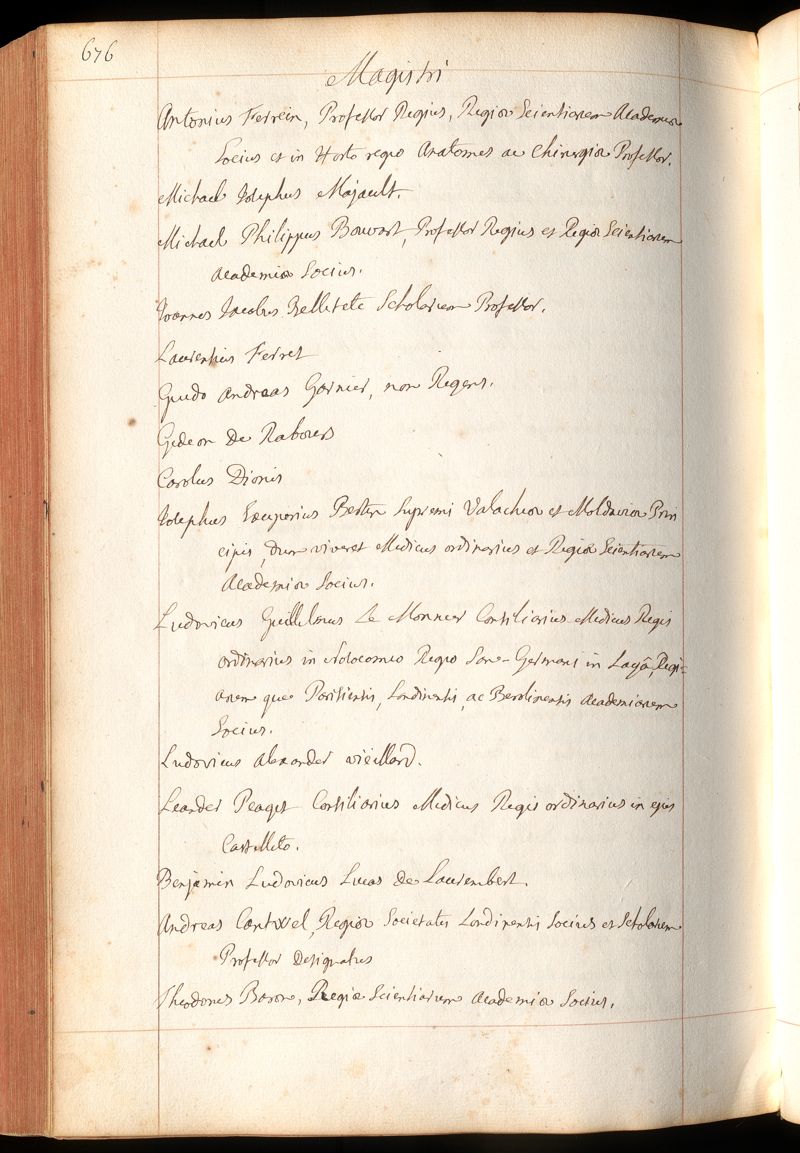 676
Magistri
Antonius Ferrein, Professor Regius, Regiæ Scientiarum Academiæ
Socius et in Horto regio Anatomes ac Chirurgiæ Professor.
Michael Josephus Majault.
Michael Philippus Bouvart, Professor Regius et Regiæ Scientiarum
Academiæ Socius.
Joannes Jacobus Belletete Scholarum Professor.
Laurentius Ferret
Guido Andreas Garnier, non Regens.
Gedeon De Rabours
Carolus Dionis
Josephus Exuperius Bertin Supremi Valachiæ et Moldaviæ Prin
cipis, dum viveret Medicus ordinarius et Regiæ Scientiarum
Academiæ Socius.
Ludovicus Guillelmus Le Monnier Consiliarius Medicus Regis
ordinarius in Nosocomio Regio San-Germani in Layâ, Regi-
arum que Parisiensis, Londinensis, ac Berolinensis Academiarum
Socius.
Ludovicus Alexander Vieillard.
Leander Peaget Consiliarius Medicus Regis ordinarius in ejus
Castelleto.
Benjamin Ludovicus Lucas de Laurembert.
Andreas Cantwel, Regiæ Societatis Londinensis Socius et Scholarum
Professor Designatus
Theodorus Baron, Regiæ Scientiarum Academiæ Socius.